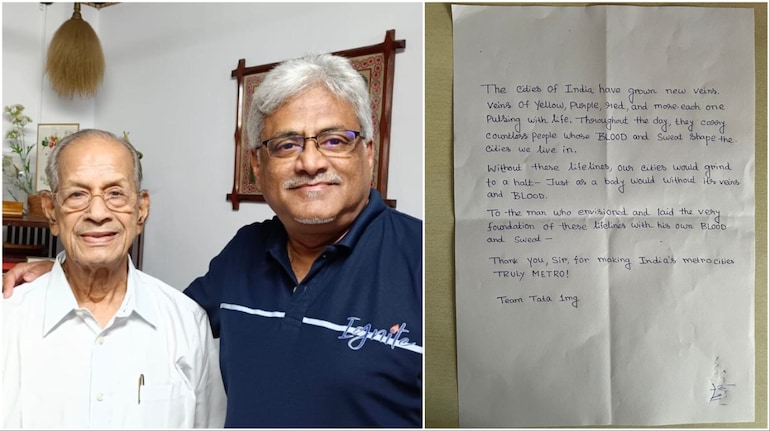 Ignite
The cities of India have grown new veins.
Veins of Yellow, Purple, Red, and more - each one
Pulsing with life. Throughout the day, they carry
countless people whose BLOOD and Sweat shape the
cities we live in.
Without these lifelines, our cities would grind
to a halt - Just as a body would without its veins
and BLOOD.
To the man who envisioned and laid the very
foundation of these lifelines with his own BLOOD
and Sweat -
Thank you, Sir, for making India's metro cities
TRULY METRO!
Team Tata 1mg